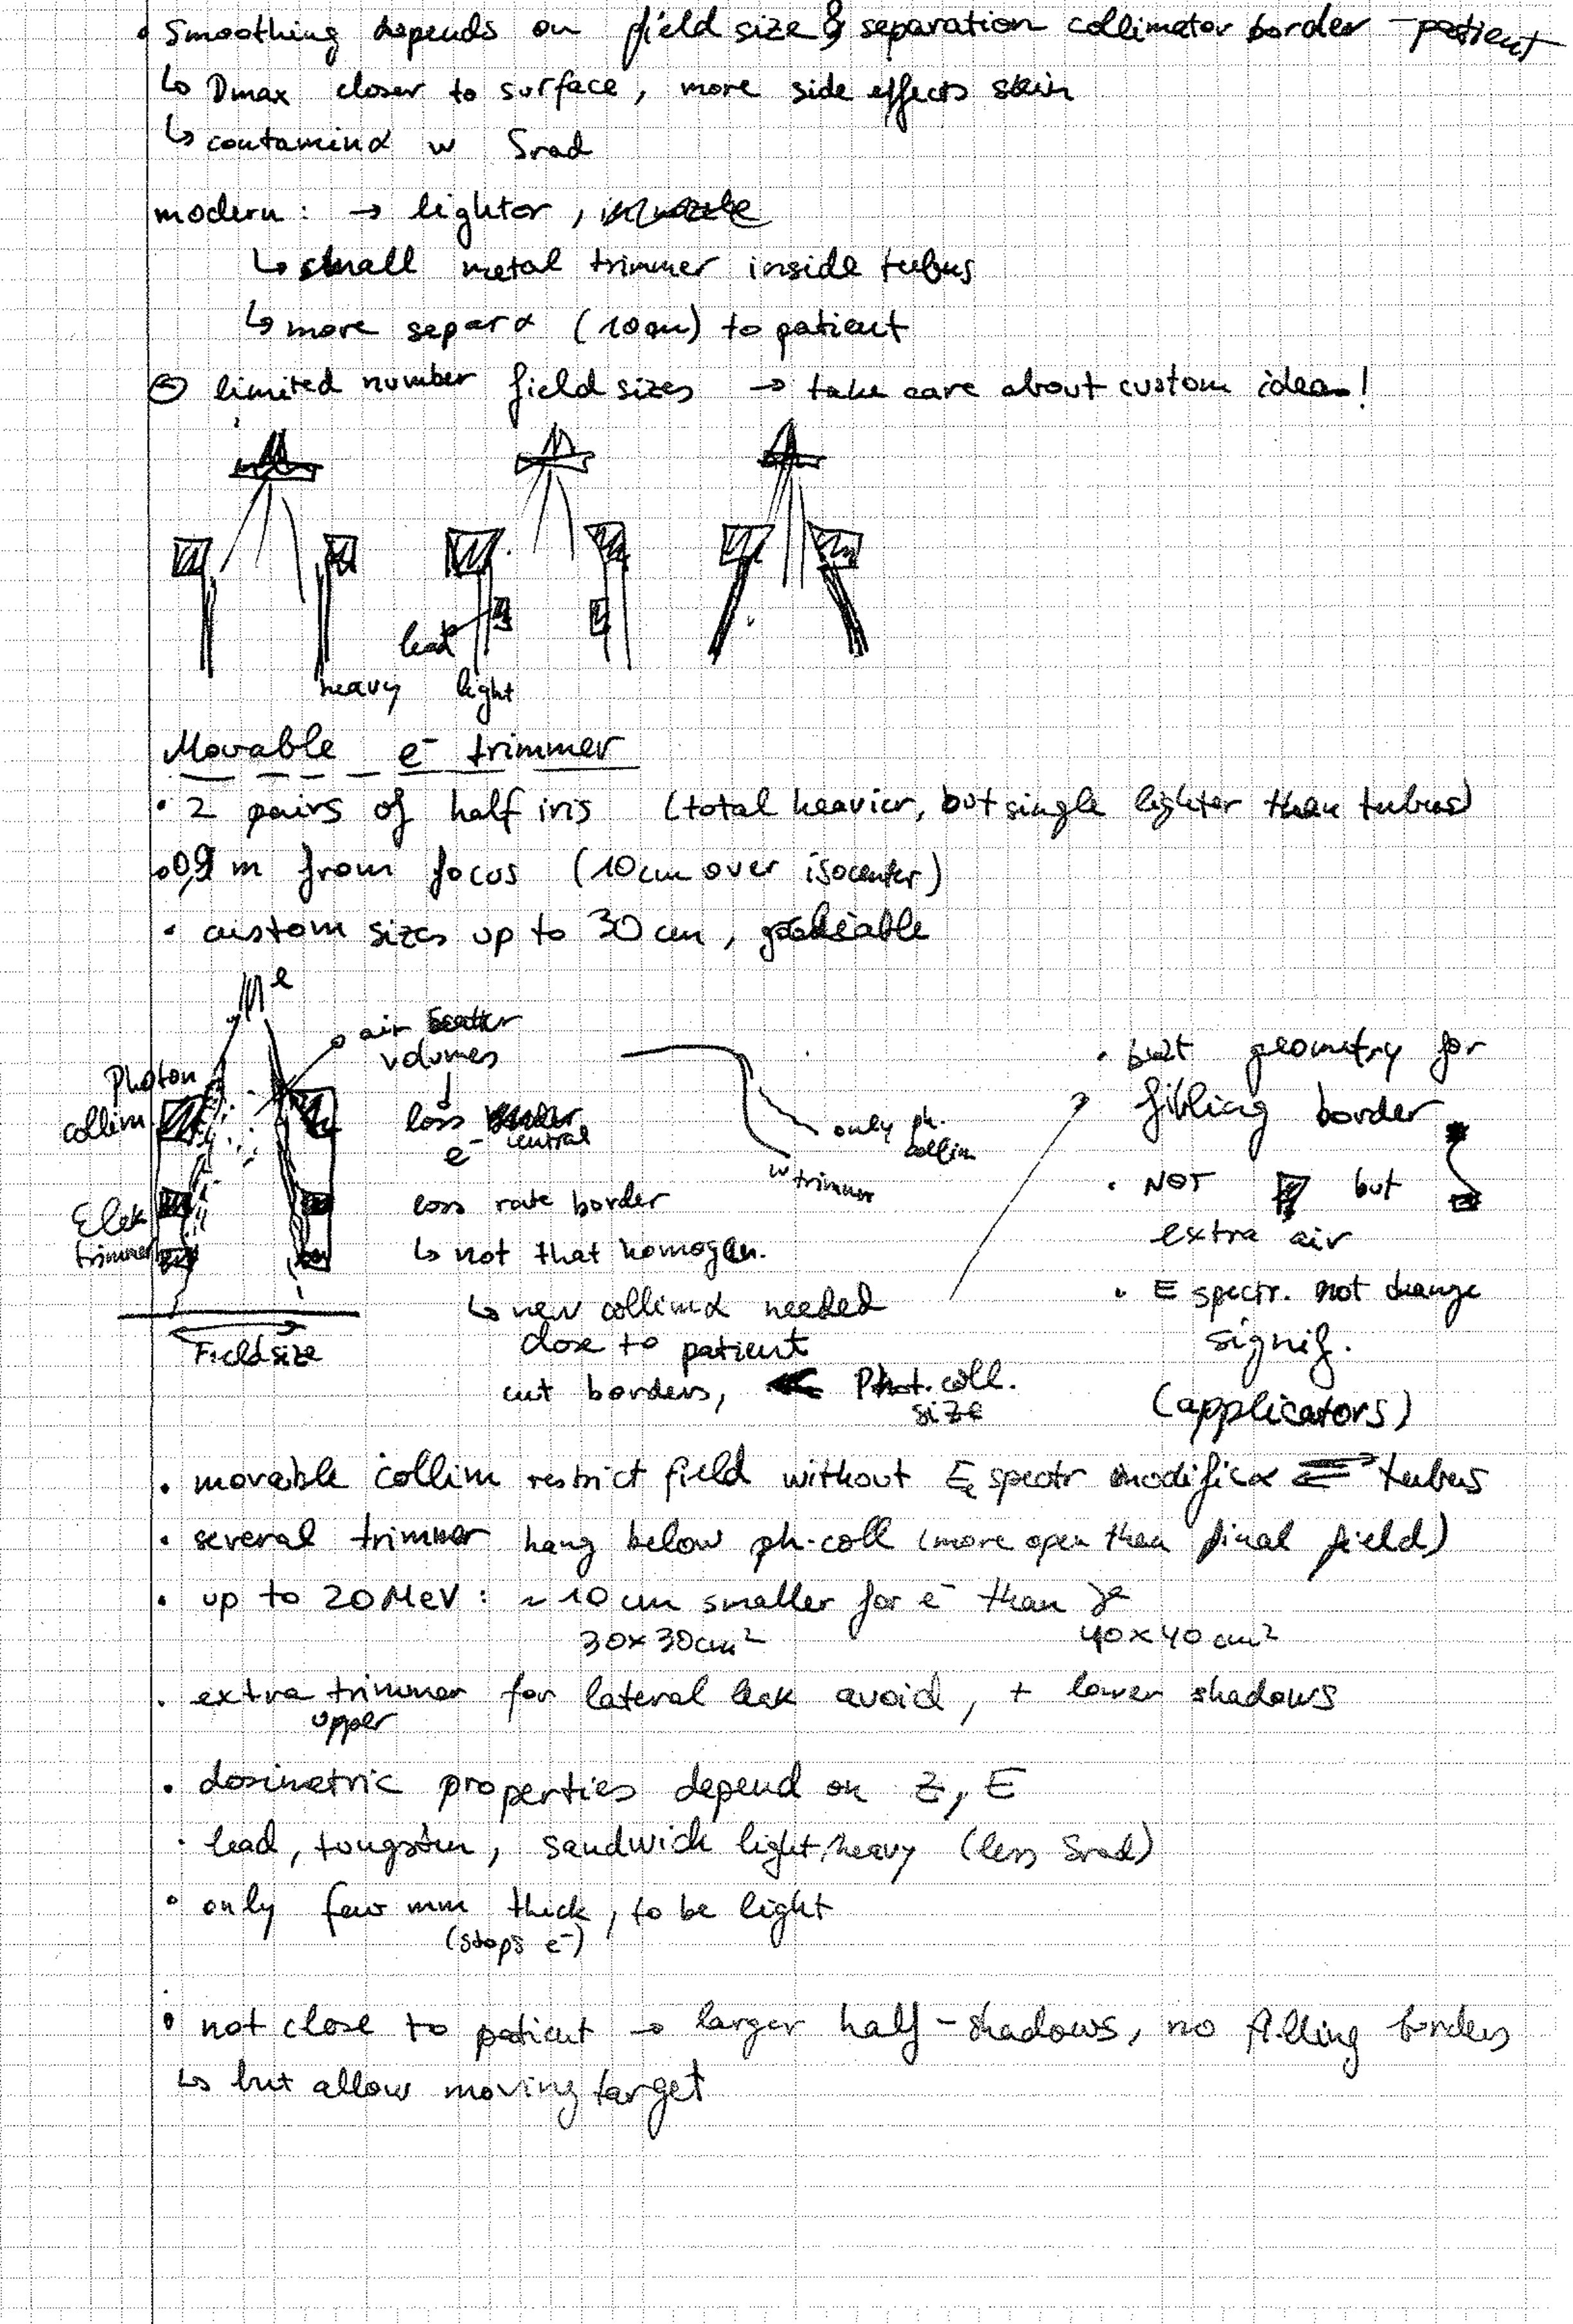 • Smoothing depends on field size & separation collimator border - patient
↳ Dmax closer to surface, more side effects skin
↳ contaminα w Srad
modern: → lighter,
↳ small metal trimmer inside tubus
↳ more separα (10cm) to patient
⊖ limited number field sizes → take care about custom idea!
lead
heavy light
Movable e⁻ trimmer
• 2 pairs of half iris (total heavier, but single lighter than tubus)
• 0,9 m from focus (10cm over isocenter)
• custom sizes up to 30 cm,
e
air scatter
volumes
Photon
collim
loss
central
e⁻
only ph.
collim
w trimmer
Elek
trimmer
loss rate border
↳ not that homogen.
↳ new collimα needed
close to patient
cut borders, Phot. coll.
size
Field size
• geometry for
filling border
• NOT but
extra air
• E spectr. not change
signif.
(applicators)
• movable collim restrict field without E spectr modificα tubus
• several trimmer hang below ph-coll (more open than final field)
• up to 20 MeV: ~ 10 cm smaller for e⁻ than γ
30×30cm² 40×40 cm²
• extra trimmer for lateral leak avoid, + lower shadows
upper
• dosimetric properties depend on Z, E
• lead, tungsten, sandwich light/heavy (less Srad)
• only few mm thick, to be light
(stops e⁻)
• not close to patient → larger half-shadows, no filling borders
↳ but allow moving target